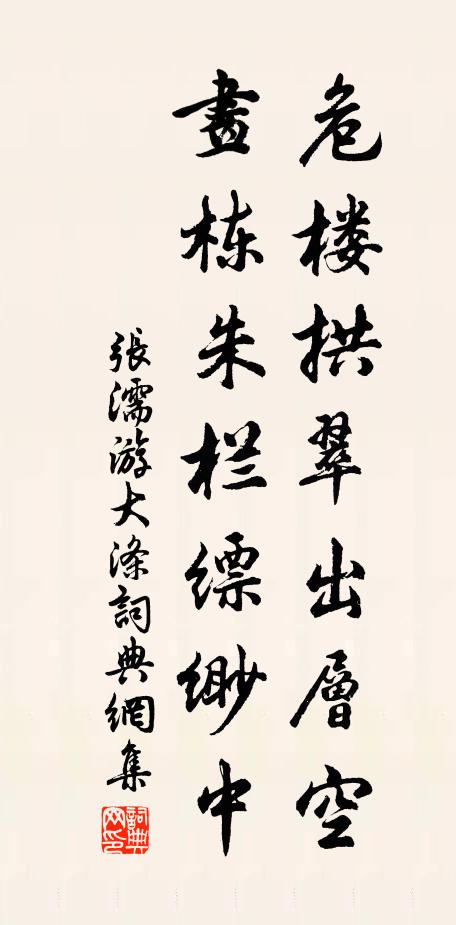 危楼拱翠出層空
畫栋朱栏缥缈中
張濡游大涤詞典網集
詞典网印